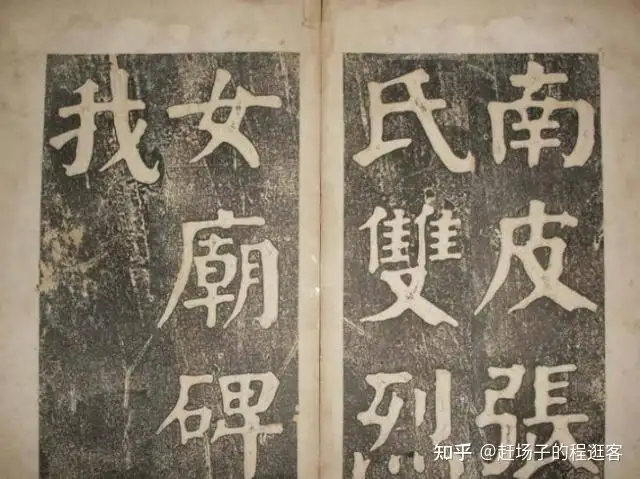 南皮張
氏雙烈
女廟碑
我
知乎 @赶场子的程逛客